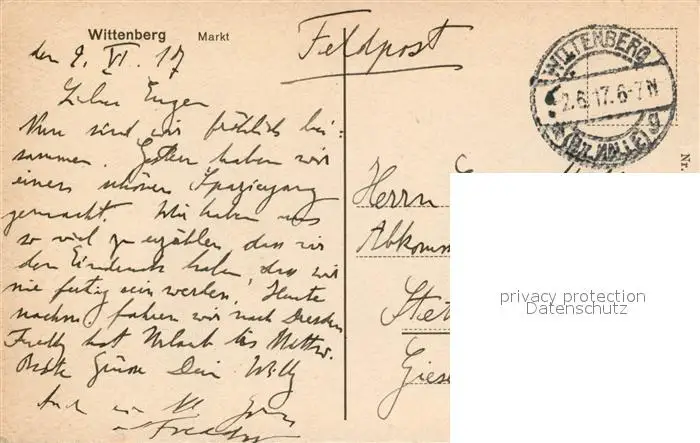 Wittenberg Markt
Feldpost
den 9. VI. 17
Lieber Eugen
Nun sind wir fröhlich bei=
sammen. Gestern haben wir
einen schönen Spaziergang
gemacht. Wir haben uns
so viel zu erzählen, dass wir
den Eindruck haben, das wir
nie fertig sein werden. Heute
nachm. fahren wir nach Dresden
Fredy hat Urlaub bis Mittw.
Beste Grüsse Dein Willy
Auch ein
WITTENBERG
2.6.17.6-7N
(BZ. HALLE) g
Nr.
Herrn
Abkomm
Stet
Giese
privacy protection
Datenschutz